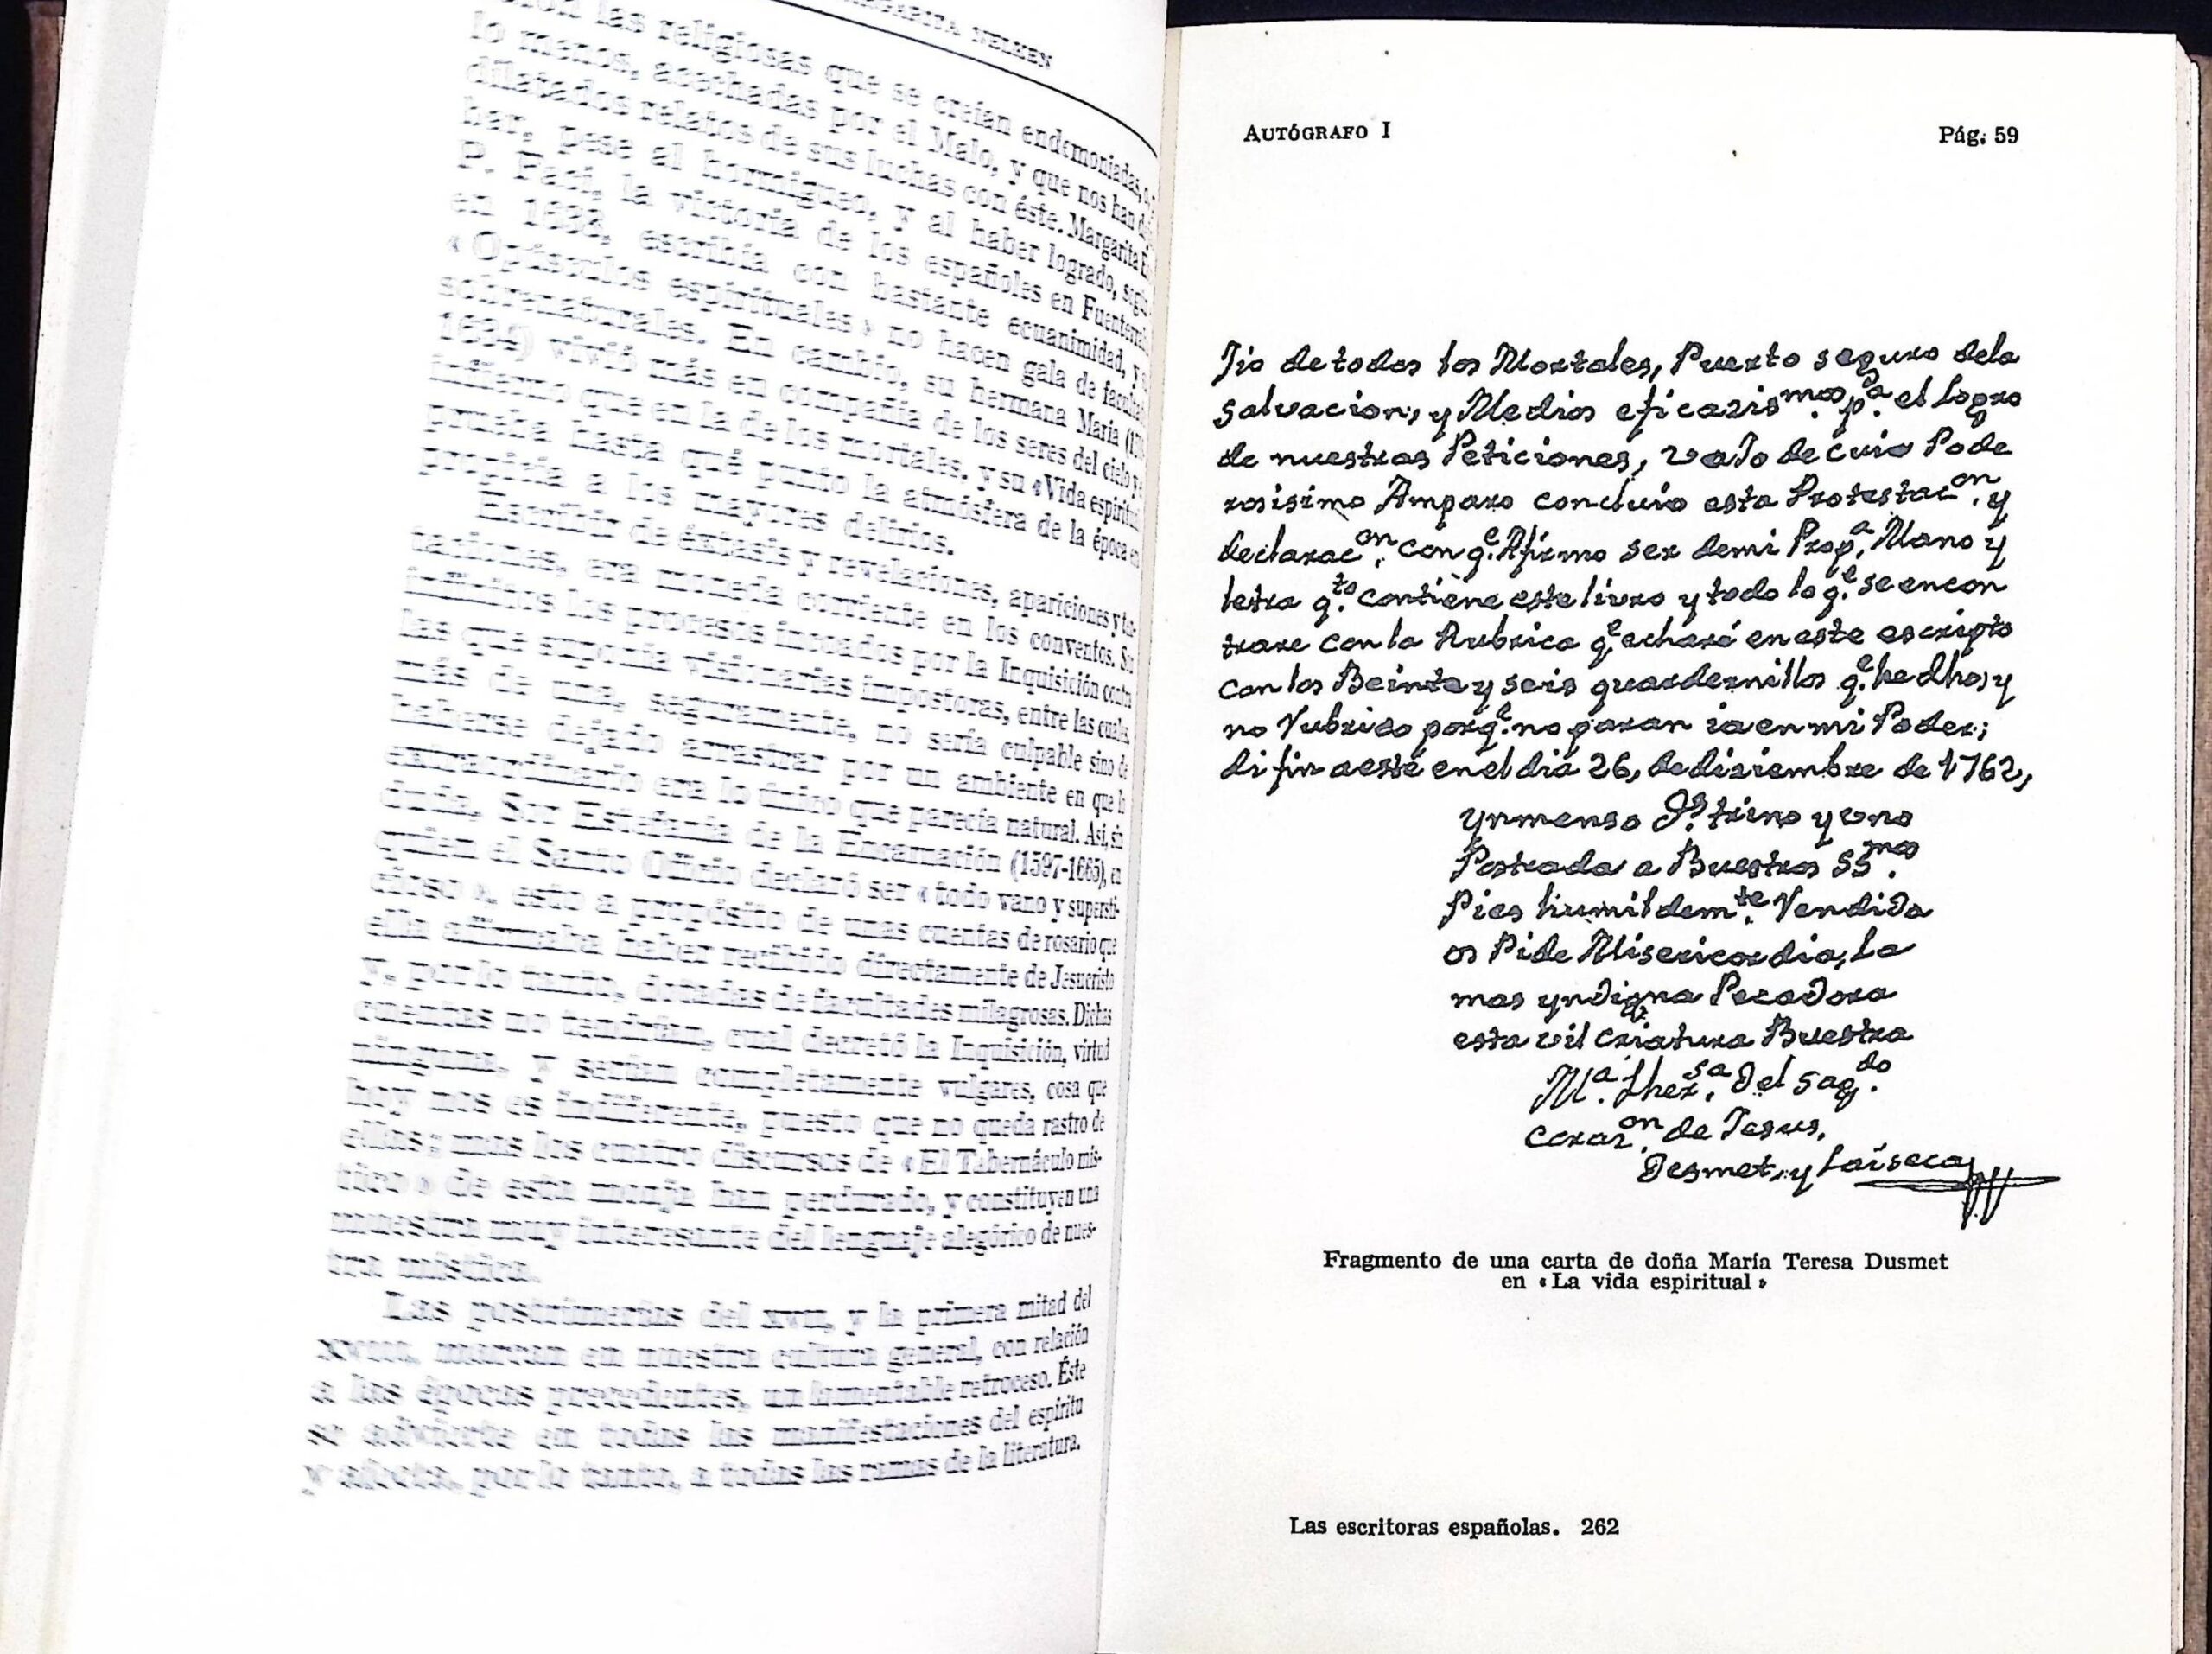 MARGARITA NELKEN
las religiosas que se creían endemoniadas,
lo menos, acechadas por el Malo, y que nos han
dilatados relatos de sus luchas con éste. Margarita
bar, pese al hormigueo, y al haber logrado,
P. Faci, la victoria de los españoles en
en 1638, escribía con bastante ecuanimidad,
« Opúsculos espirituales » no hacen gala de
sobrenaturales. En cambio, su hermana María
vivió más en compañía de los seres del cielo y
infierno que en la de los mortales, y su «Vida
prueba hasta qué punto la atmósfera de la época
propicia a los mayores delirios.
Escribir de éxtasis y revelaciones, apariciones y ten-
taciones, era moneda corriente en los conventos.
infinitos los procesos incoados por la Inquisición contra
las que suponía visionarias impostoras, entre las cuales,
más de una, seguramente, no sería culpable sino de
haberse dejado arrastrar por un ambiente en que lo
extraordinario era lo único que parecía natural. Así, sin
duda, Sor Estefanía de la Encarnación (1597-1665), en
quien el Santo Oficio declaró ser « todo vano y supersti-
cioso », esto a propósito de unas cuentas de rosario que
ella afirmaba haber recibido directamente de Jesucristo
y, por lo tanto, dotadas de facultades milagrosas. Dichas
cuentas no tendrían, cual decretó la Inquisición, virtud
ninguna, y serían completamente vulgares, cosa que
hoy nos es indiferente, puesto que no queda rastro de
ellas; mas los cuatro discursos de « El Tabernáculo mís-
tico » de esta monja han perdurado, y constituyen una
muestra muy interesante del lenguaje alegórico de nues-
tra mística.
Las postrimerías del XVII, y la primera mitad del
XVIII, marcan en nuestra cultura general, con relación
a las épocas precedentes, un lamentable retroceso. Éste
se advierte en todas las manifestaciones del espíritu
y afecta, por lo tanto, a todas las ramas de la literatura.
AUTÓGRAFO I
Pág. 59
Jio de todos los Mortales, Puerto seguro dela
salvacion, y Medios eficazismos. pa. el Logro
de nuestras Peticiones, vaJo de cuio Pode
rosisimo Amparo concluio esta Protestacon. y
declaracon. con qe. Afirmo ser demi Propa. Mano y
letra qto. contiene este livro y todo lo qe. se encon
trare con la Rubrica qe echaré en este escripto
con los Beinte y seis quardernillos qe. he dho, y
no Vubrico porqe. no paran ia en mi Poder;
di fin a esté en el dia 26, de diziembre de 1762,
ynmenso Ds. trino y vno
Postrada a Buestros SSmos.
Pies humildemte. Vendida
os Pide Misericordia, la
mas yndigna Pecadora
esta vil criatura Buestra
Ma. Thersa. Del Sagdo.
Corazon. de Jesus,
Desmet, y Laiseca
Fragmento de una carta de doña María Teresa Dusmet
en « La vida espiritual »
Las escritoras españolas. 262